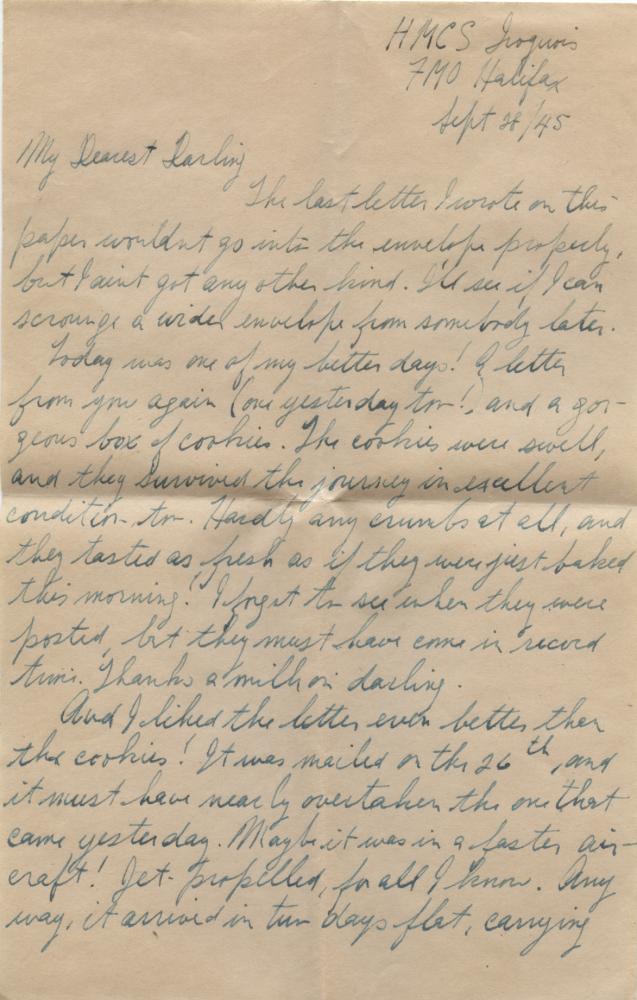 HMCS Iroquois
FMO Halifax
Sept 28/45
My Dearest Darling
The last letter I wrote on this
paper wouldnt go into the envelope properly,
but I aint got any other kind. I'll see if I can
scrounge a wider envelope from somebody later.
Today was one of my better days! A letter
from you again (one yesterday too!) and a gor-
geous box of cookies. The cookies were swell,
and they survived the journey in excellent
condition, too. Hardly any crumbs at all, and
they tasted as fresh as if they were just baked
this morning! I forgot to see when they were
posted, but they must have come in record
time. Thanks a million darling.
And I liked the letter even better than
the cookies! It was mailed on the 26th, and
it must have nearly overtaken the one that
came yesterday. Maybe it was in a faster air-
craft! Jet-propelled, for all I know. Any
way, it arrived in two days flat, carrying